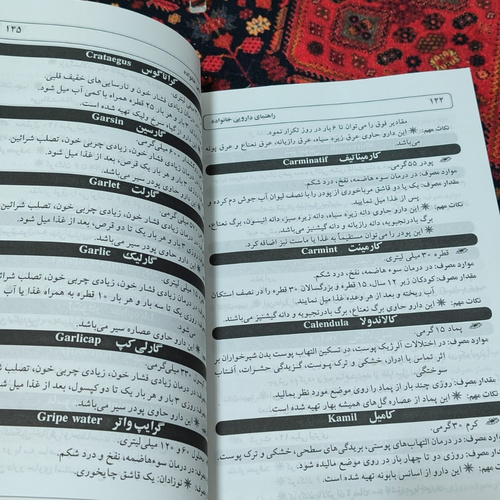 ۱۲۲
راهنمای دارویی خانواده
مقادیر فوق را می‌توان تا ۶ بار در روز تکرار نمود.
نکات مهم: این دارو حاوی عرق زیره سیاه، عرق رازیانه، عرق نعناع و عرق پونه
می‌باشد.
کارمیناتیف Carminatif
پودر ۵۵ گرمی.
موارد مصرف: در درمان سوء هاضمه، نفخ، درد شکم.
مقدار مصرف: یک یا دو قاشق مرباخوری از پودر را با نصف لیوان آب جوش دم کرده و
پس از غذا میل نمایید.
نکات مهم: این دارو حاوی دانه زیره سیاه، دانه زیره سبز، دانه انیسون، برگ نعناع،
برگ بادرنجبویه دانه رازیانه و دانه گشنیز می‌باشد.
این پودر را می‌توان مستقیماً به غذا یا ماست نیز اضافه کرد.
کارمینت Carmint
قطره ۳۰ میلی لیتری.
موارد مصرف: در درمان سوء هاضمه، نفخ، درد شکم.
مقدار مصرف: کودکان زیر ۱۲ سال، ۱۵ قطره و بزرگسالان ۳۰ قطره را در نصف استکان
آب ریخته و بعد از هر وعده غذا میل نمایند.
نکات مهم: این دارو حاوی برگ نعناع، برگ بادرنجبویه و دانه گشنیز می‌باشند
کالاندولا Calendula
پماد ۱۵ گرمی.
موارد مصرف: در اختلالات آلرژیک پوست، در تسکین التهاب پوست بدن شیرخواران بر
اثر تماس با ادرار، خشکی و ترک پوست، گزیدگی حشرات، آفتاب
سوختگی.
مقدار مصرف: روزی چند بار از پماد را روی موضع مورد نظر بمالید.
نکات مهم: این پماد از عصاره گل‌های همیشه بهار تهیه شده است.
کامیل Kamil
کرم ۳۰ گرمی.
موارد مصرف: در درمان التهاب‌های پوستی، بریدگی‌های سطحی، خشکی و ترک پوست.
مقدار مصرف: روزی دو تا چهار بار در روز روی موضع مالیده شود.
این دارو از اسانس بابونه تهیه شده است.
۱۳۵
کراتاگوس Crataegus
لیتری.
زیادی فشار خون و نارسایی‌های خفیف قلبی.
و هر بار ۲۵ قطره همراه با کمی آب میل شود.
سرخ ولیک تهیه شده است.
گارسین Garsin
میلی‌گرمی.
زیادی فشار خون، زیادی چربی خون، تصلب شرائین.
هر بار یک قرص، بعد از غذا میل شود.
حاوی پودر سیر می‌باشد.
گارلت Garlet
میلی‌گرمی.
زیادی فشار خون، زیادی چربی خون، تصلب شرائین.
بار و هر بار یک تا دو قرص، بعد از غذا میل شود.
دارو حاوی پودر سیر می‌باشد.
گارلیک Garlic
۳۰ میلی لیتری.
درمان زیادی فشار خون، زیادی چربی خون، تصلب شرائین
روزی یک تا سه بار و هر بار ۱۰ قطره به همراه غذا یا آب
شود.
این دارو حاوی عصاره سیر می‌باشد.
گارلی کپ Garlicap
میلی‌گرمی.
درمان زیادی فشار خون، زیادی چربی خون، تصلب شرائین
روزی ۳ بار و هر بار یک تا دو کپسول، بعد از غذا میل شود
این دارو حاوی پودر سیر می‌باشد.
گرایپ واتر Gripe water
۶۰ و ۱۲۰ میلی لیتری.
در درمان سوء هاضمه، نفخ و درد شکم.
نوزادان: یک قاشق چایخوری.